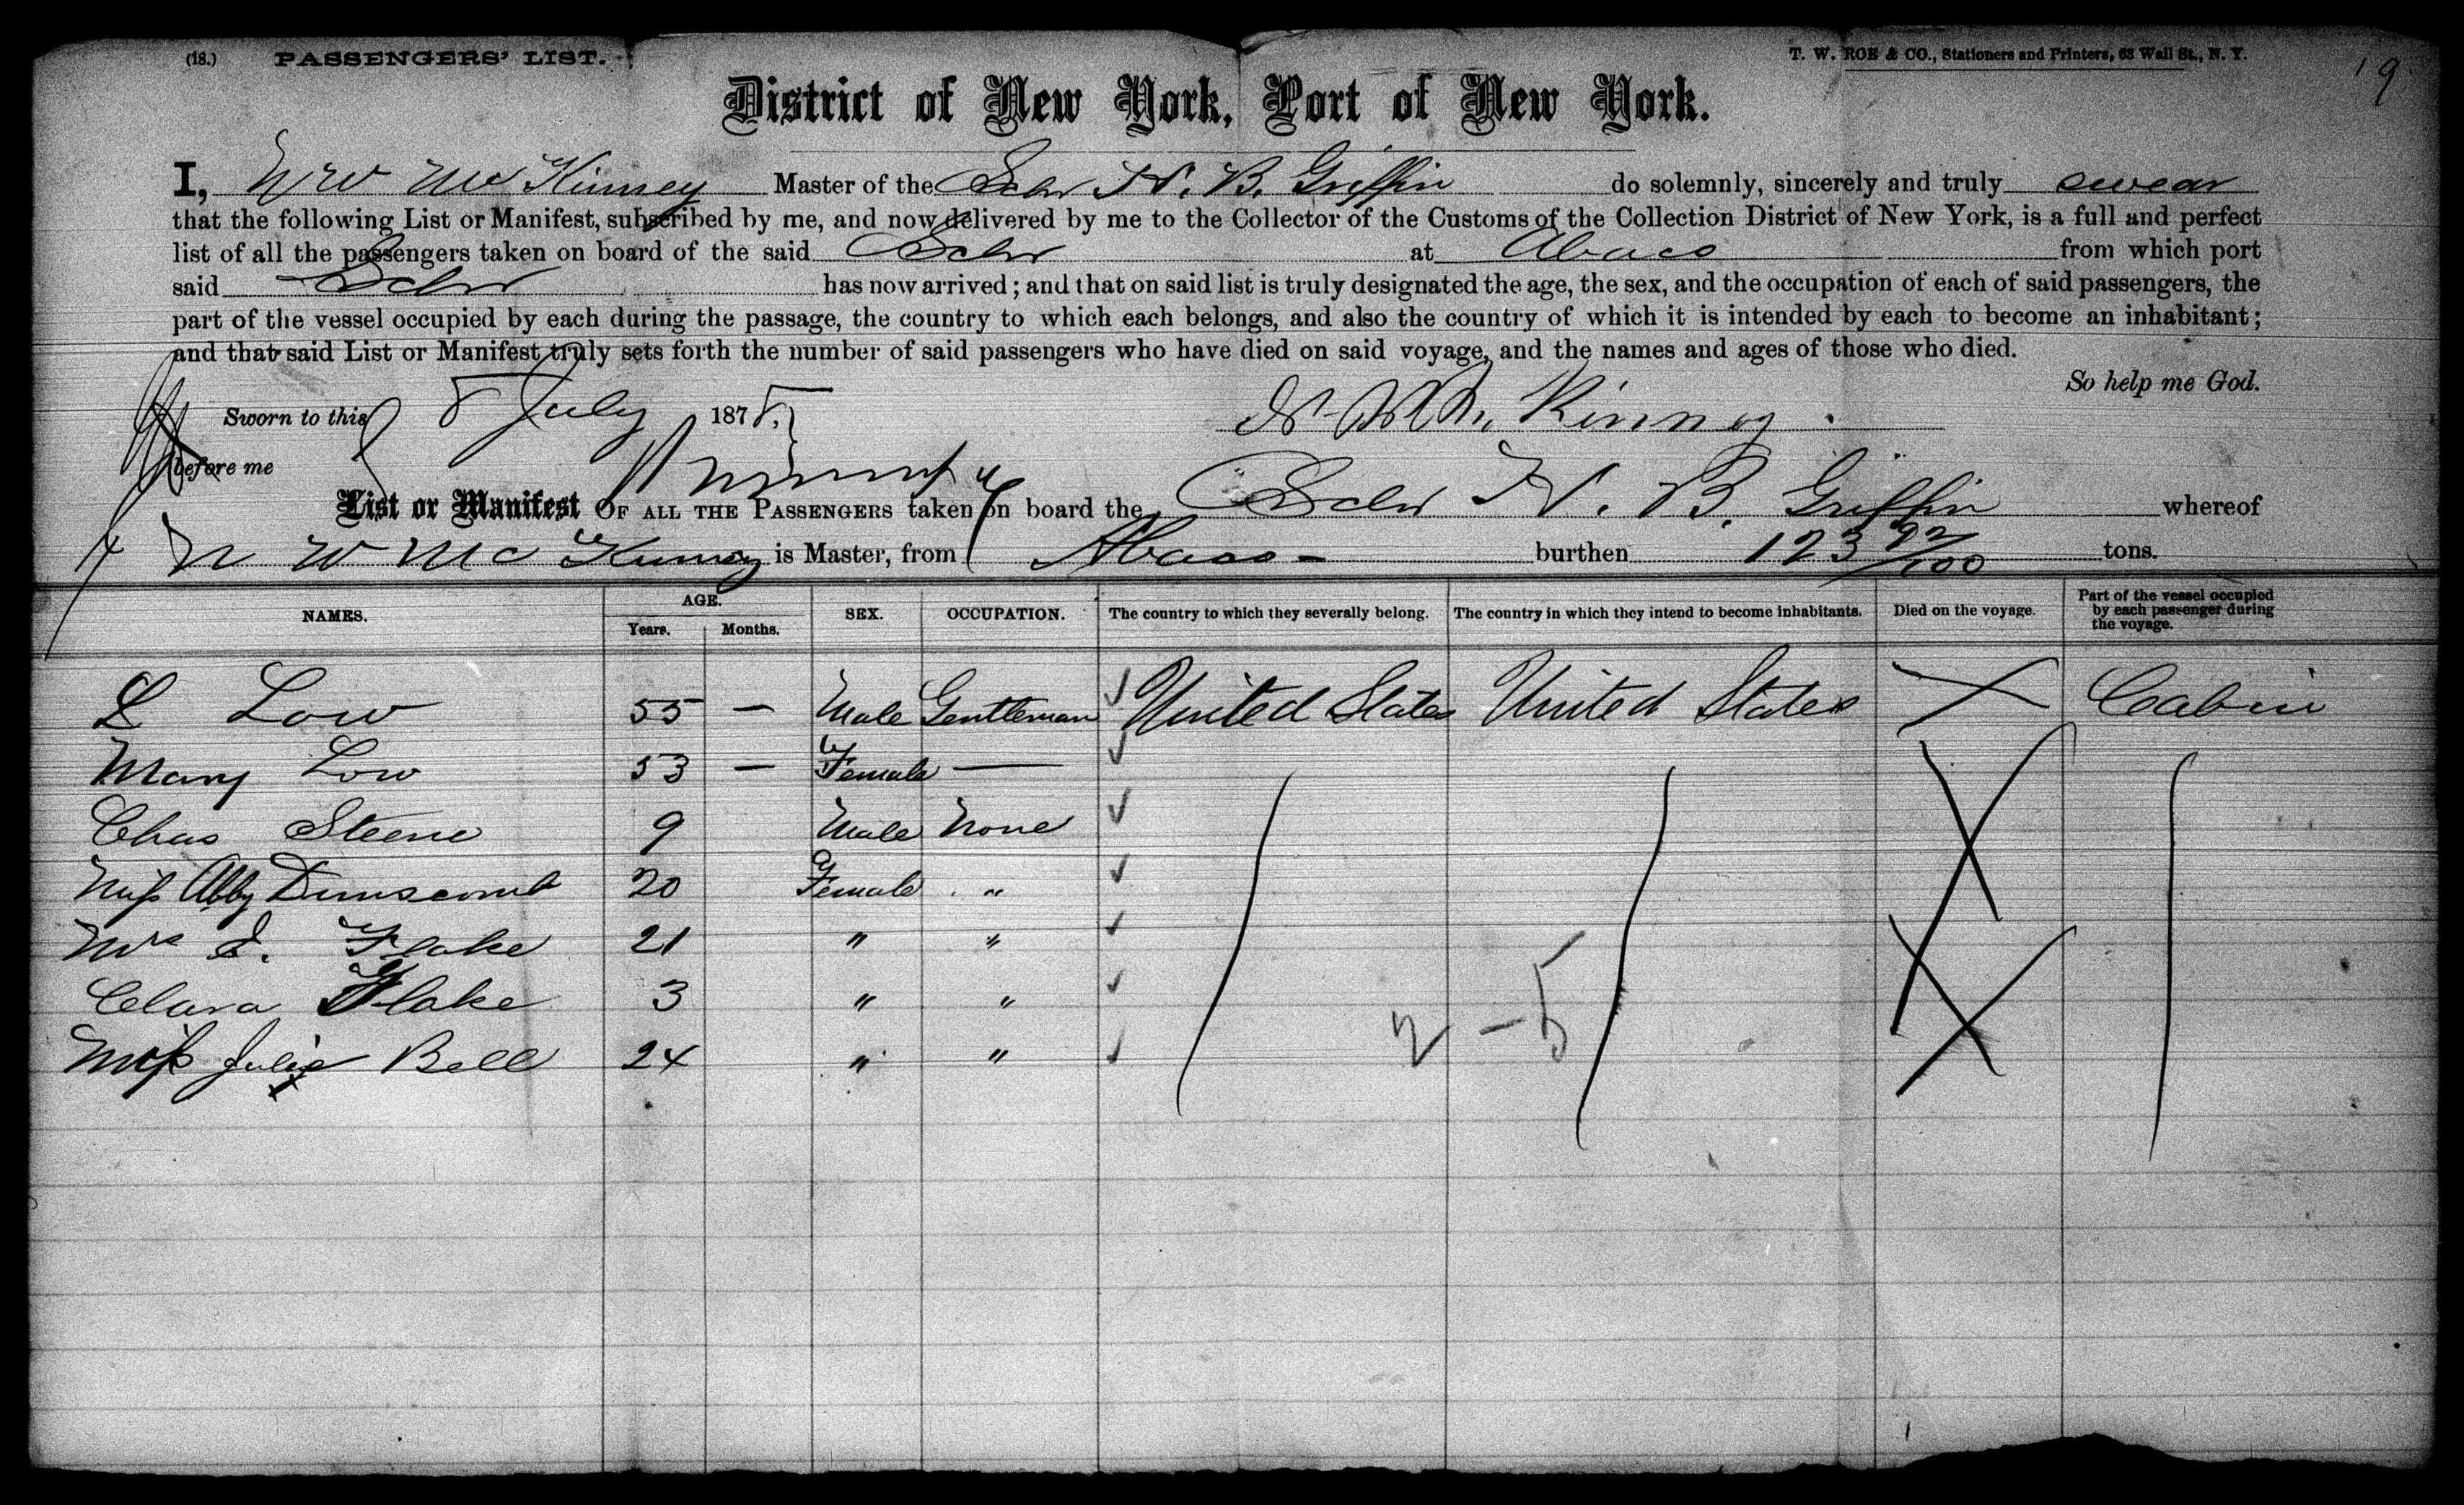 (18.) PASSENGERS' LIST. T. W. ROE & CO., Stationers and Printers, 63 Wall St., N. Y. 19
District of New York, Port of New York.
I, N W McKinney Master of the Schr N. B. Griffin do solemnly, sincerely and truly swear
that the following List or Manifest, subscribed by me, and now delivered by me to the Collector of the Customs of the Collection District of New York, is a full and perfect
list of all the passengers taken on board of the said Schr at Abaco from which port
said Schr has now arrived; and that on said list is truly designated the age, the sex, and the occupation of each of said passengers, the
part of the vessel occupied by each during the passage, the country to which each belongs, and also the country of which it is intended by each to become an inhabitant;
and that said List or Manifest truly sets forth the number of said passengers who have died on said voyage, and the names and ages of those who died.
So help me God.
Sworn to this 8 July 1875. N. W. Mc Kinney
before me
List or Manifest OF ALL THE PASSENGERS taken on board the Schr N. B. Griffin whereof
N W Mc Kinney is Master, from Abaco - burthen 123 92/100 tons.
NAMES. AGE. Years. Months. SEX. OCCUPATION. The country to which they severally belong. The country in which they intend to become inhabitants. Died on the voyage. Part of the vessel occupied by each passenger during the voyage.
L Low 55 — Male Gentleman ✓ United States United States Cabin
Mary Low 53 — Female — ✓
Chas Steene 9 Male None ✓
Miss Abby Dunscomb 20 Female " ✓
Mrs S. Flake 21 " " ✓
Clara Flake 3 " " ✓
Miss Julia Bell 24 " " ✓
2 - 5